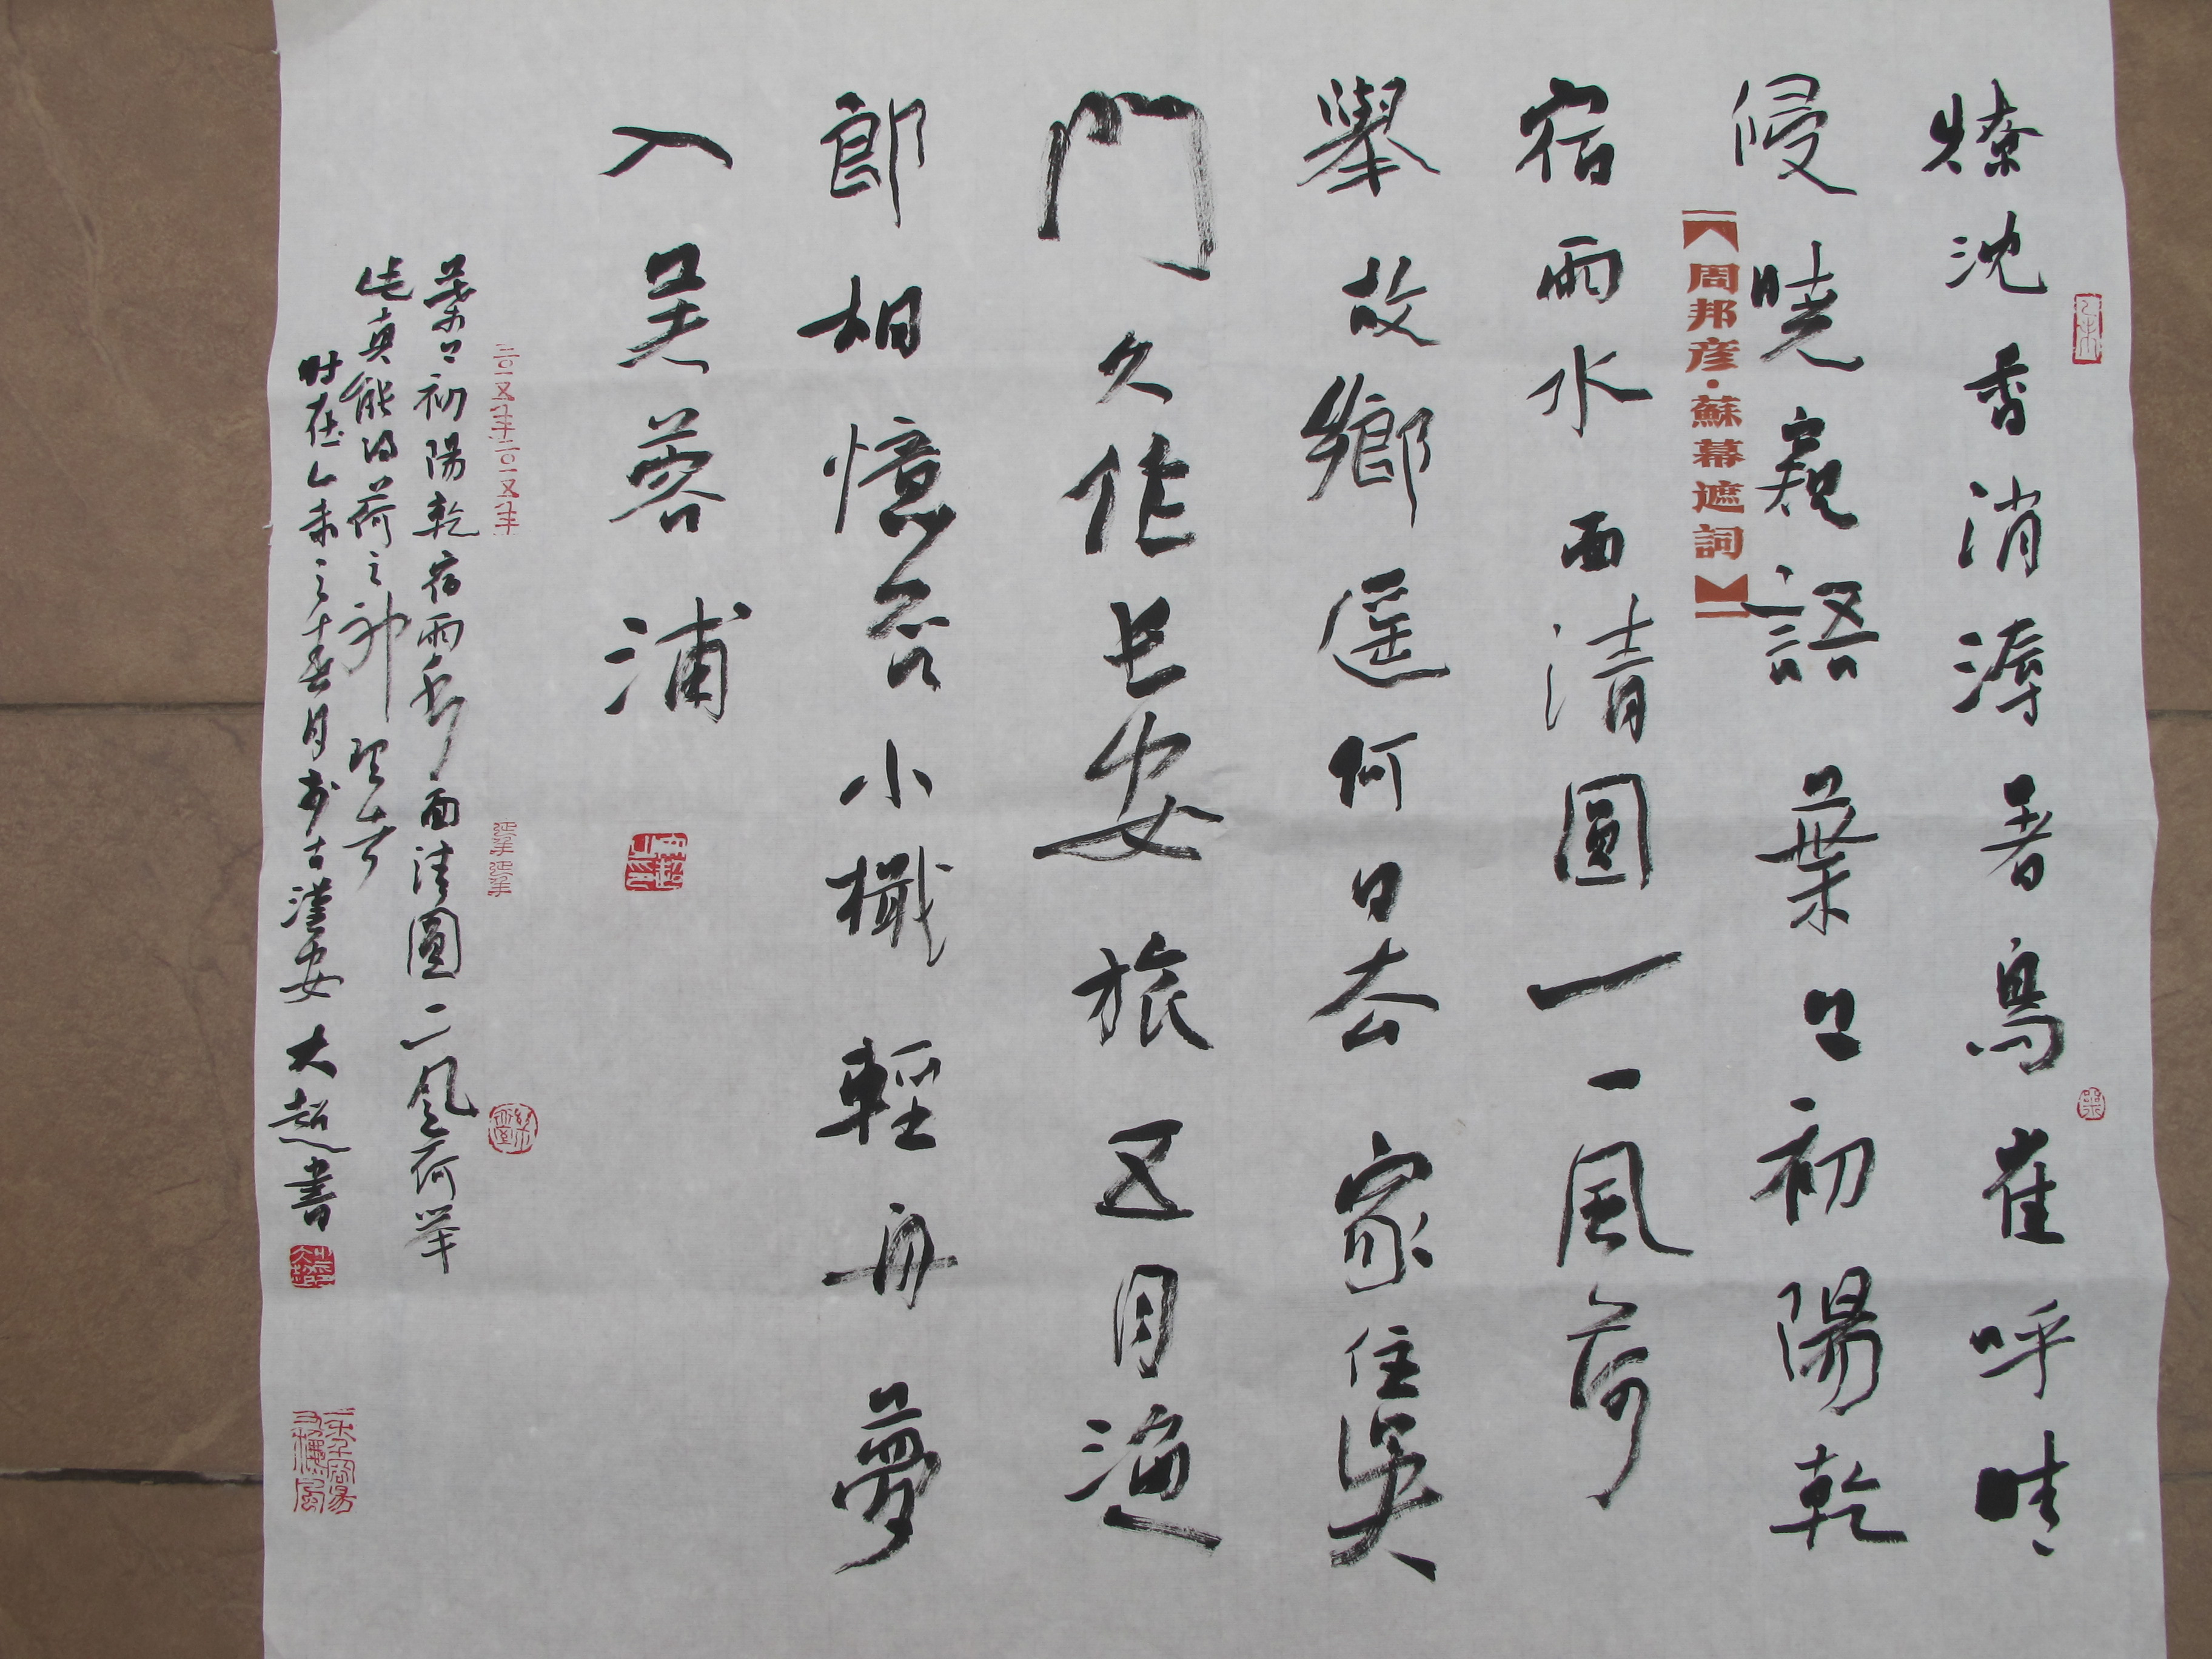 燎沈香消溽暑鳥雀呼晴
侵曉窺語葉〻初陽乾
【周邦彦·蘇幕遮詞】
宿雨水面清圓一一風荷
舉故鄉遥何日去家住吳
門久作長安旅五月漁
郎相憶否小檝輕舟夢
入芙蓉浦
二〇一五年二〇一五年
延年延年
葉〻初陽乾宿雨水面清圓一一風荷举
此真能得荷之神理者
时在乙未之月於古漢安大超書